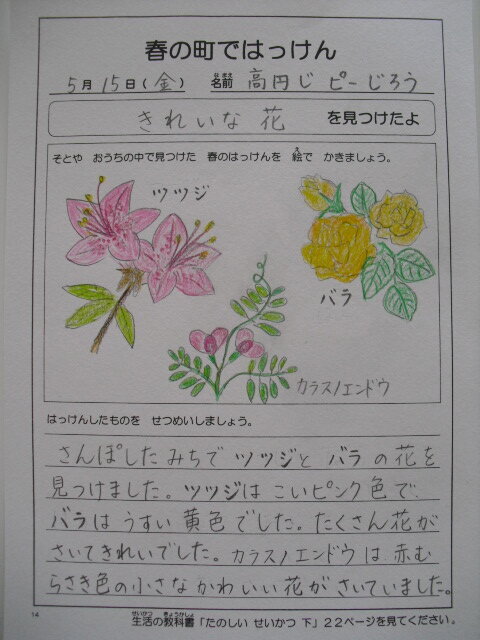 春の町ではっけん
5月15日(金) 名前 なまえ 高円じ ピーじろう
きれいな 花 を見つけたよ
そとや おうちの中で見つけた 春のはっけんを 絵で え かきましょう。
ツツジ
バラ
カラスノエンドウ
はっけんしたものを せつめいしましょう。
さんぽしたみちで ツツジと バラ の花を
見つけました。ツツジは こいピンク色で、
バラは うすい 黄色でした。たくさん花が
さいてきれいでした。カラスノエンドウ は 赤む
らさき色の小さな かわいい花が さいていました。
14
せいかつ きょうかしょ
生活の教科書「たのしい せいかつ 下」22ページを見てください。